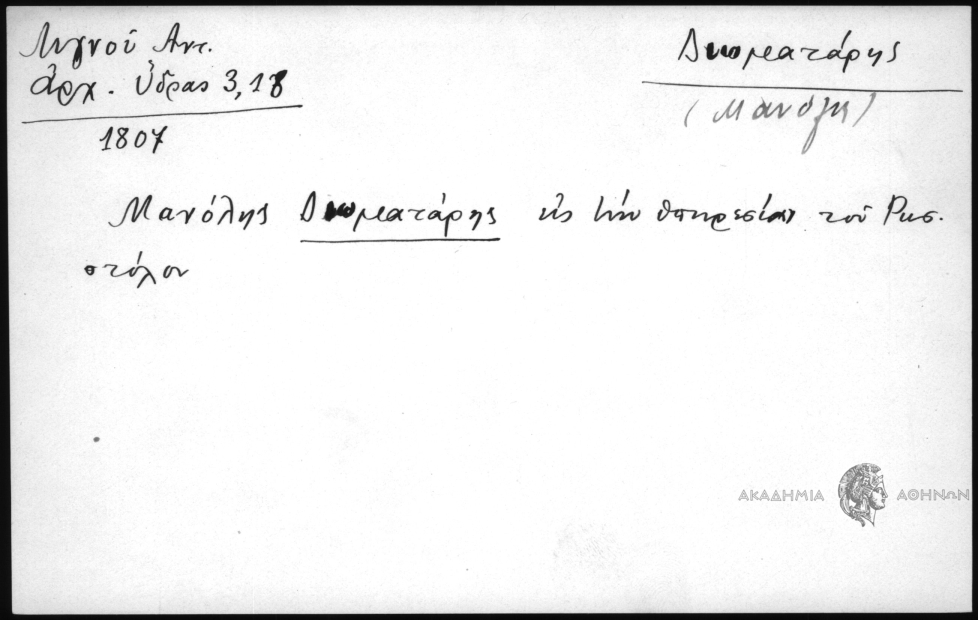 Λιγνοῦ Ἀντ.
ἀρχ. Ὕδρας 3, 18
1807
Δωματάρης
(Μανόλης)
Μανόλης Δωματάρης εἰς τὴν ὑπηρεσίαν τοῦ Ρωσ.
στόλου
ΑΚΑΔΗΜΙΑ ΑΘΗΝΩΝ